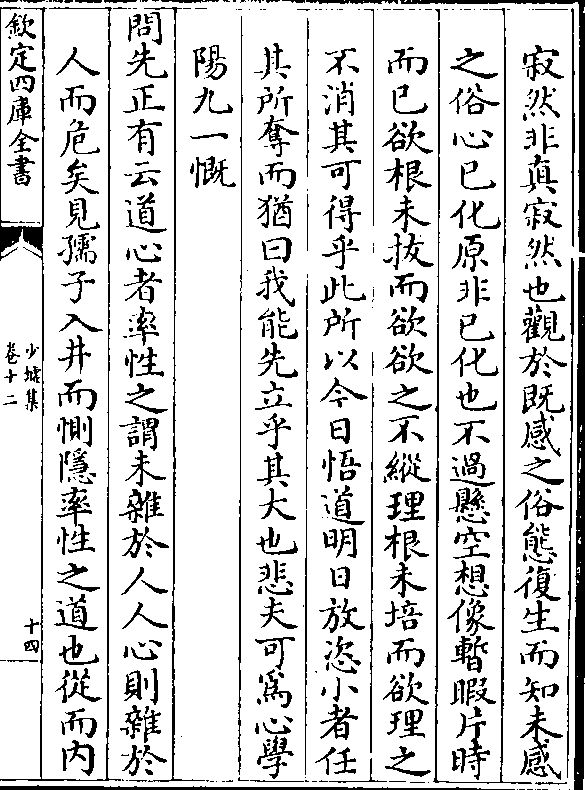 寂然非真寂然也觀於既感之俗態復生而知未感
之俗心已化原非已化也不過懸空想像暫暇片時
而已欲根未拔而欲欲之不縱理根未培而欲理之
不消其可得乎此所以今日悟道明日放恣小者任
其所奪而猶曰我能先立乎其大也悲夫可為心學
陽九一慨
問先正有云道心者率性之謂未雜於人人心則雜於
人而危矣見孺子入井而惻隱率性之道也從而內
欽定四庫全書
少墟集
卷十二
十四